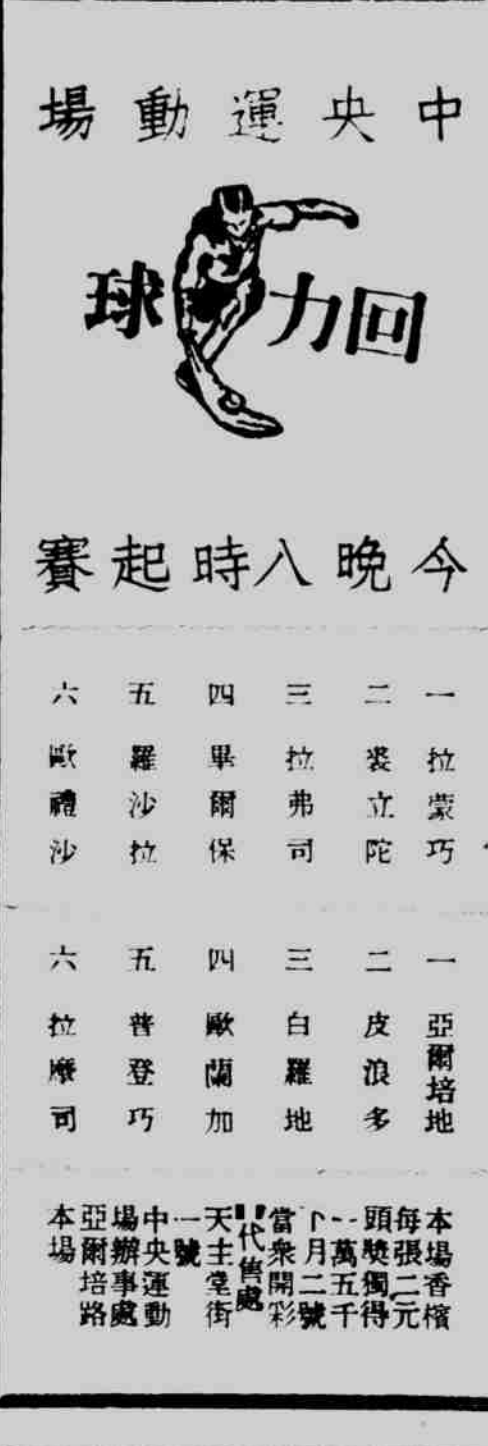 中央運動場
回力球
今晚八時起賽
一 拉蒙巧
二 裘立陀
三 拉弗司
四 畢爾保
五 羅沙拉
六 歐禮沙
一 亞爾培地
二 皮浪多
三 白羅地
四 歐蘭加
五 普登巧
六 拉摩司
本場香檳
每張二元
頭獎獨得
一萬五千
下月二號
當衆開彩
代售處
天主堂街
一號
中央運動
場辦事處
亞爾培路
本場